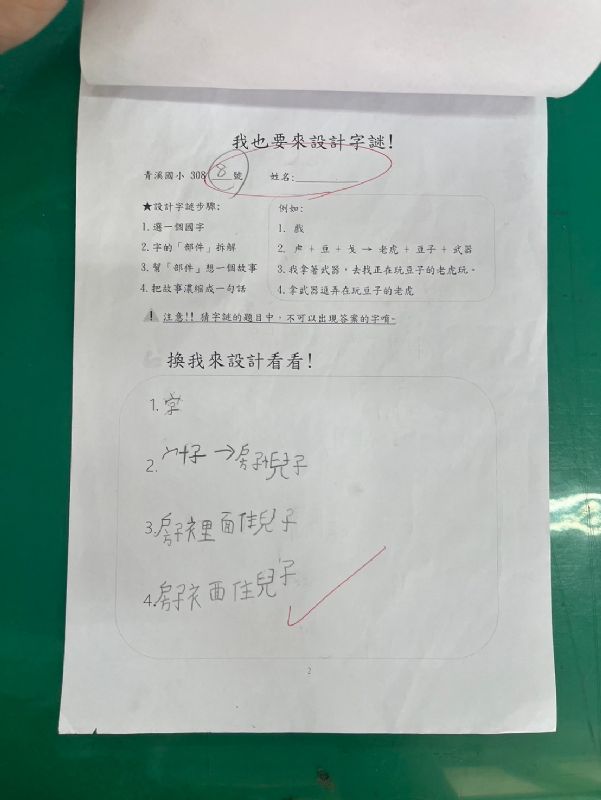 我也要來設計字謎!
青溪國小 308 8 號 姓名:
★設計字謎步驟:
1. 選一個國字
2. 字的「部件」拆解
3. 幫「部件」想一個故事
4. 把故事濃縮成一句話
例如:
1. 戲
2. 虍 + 豆 + 戈 → 老虎 + 豆子 + 武器
3. 我拿著武器,去找正在玩豆子的老虎玩。
4. 拿武器逗弄在玩豆子的老虎
! 注意!! 猜字謎的題目中,不可以出現答案的字唷~
換我來設計看看!
1. 字
2. 宀+子→房子+兒子
3. 房子裡面住兒子
4. 房子 面住兒子
2